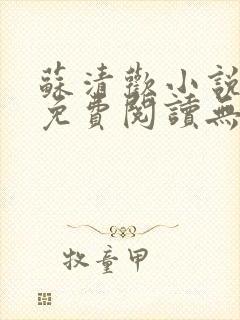 蘇清歡小說
免費閱讀無
牧童甲